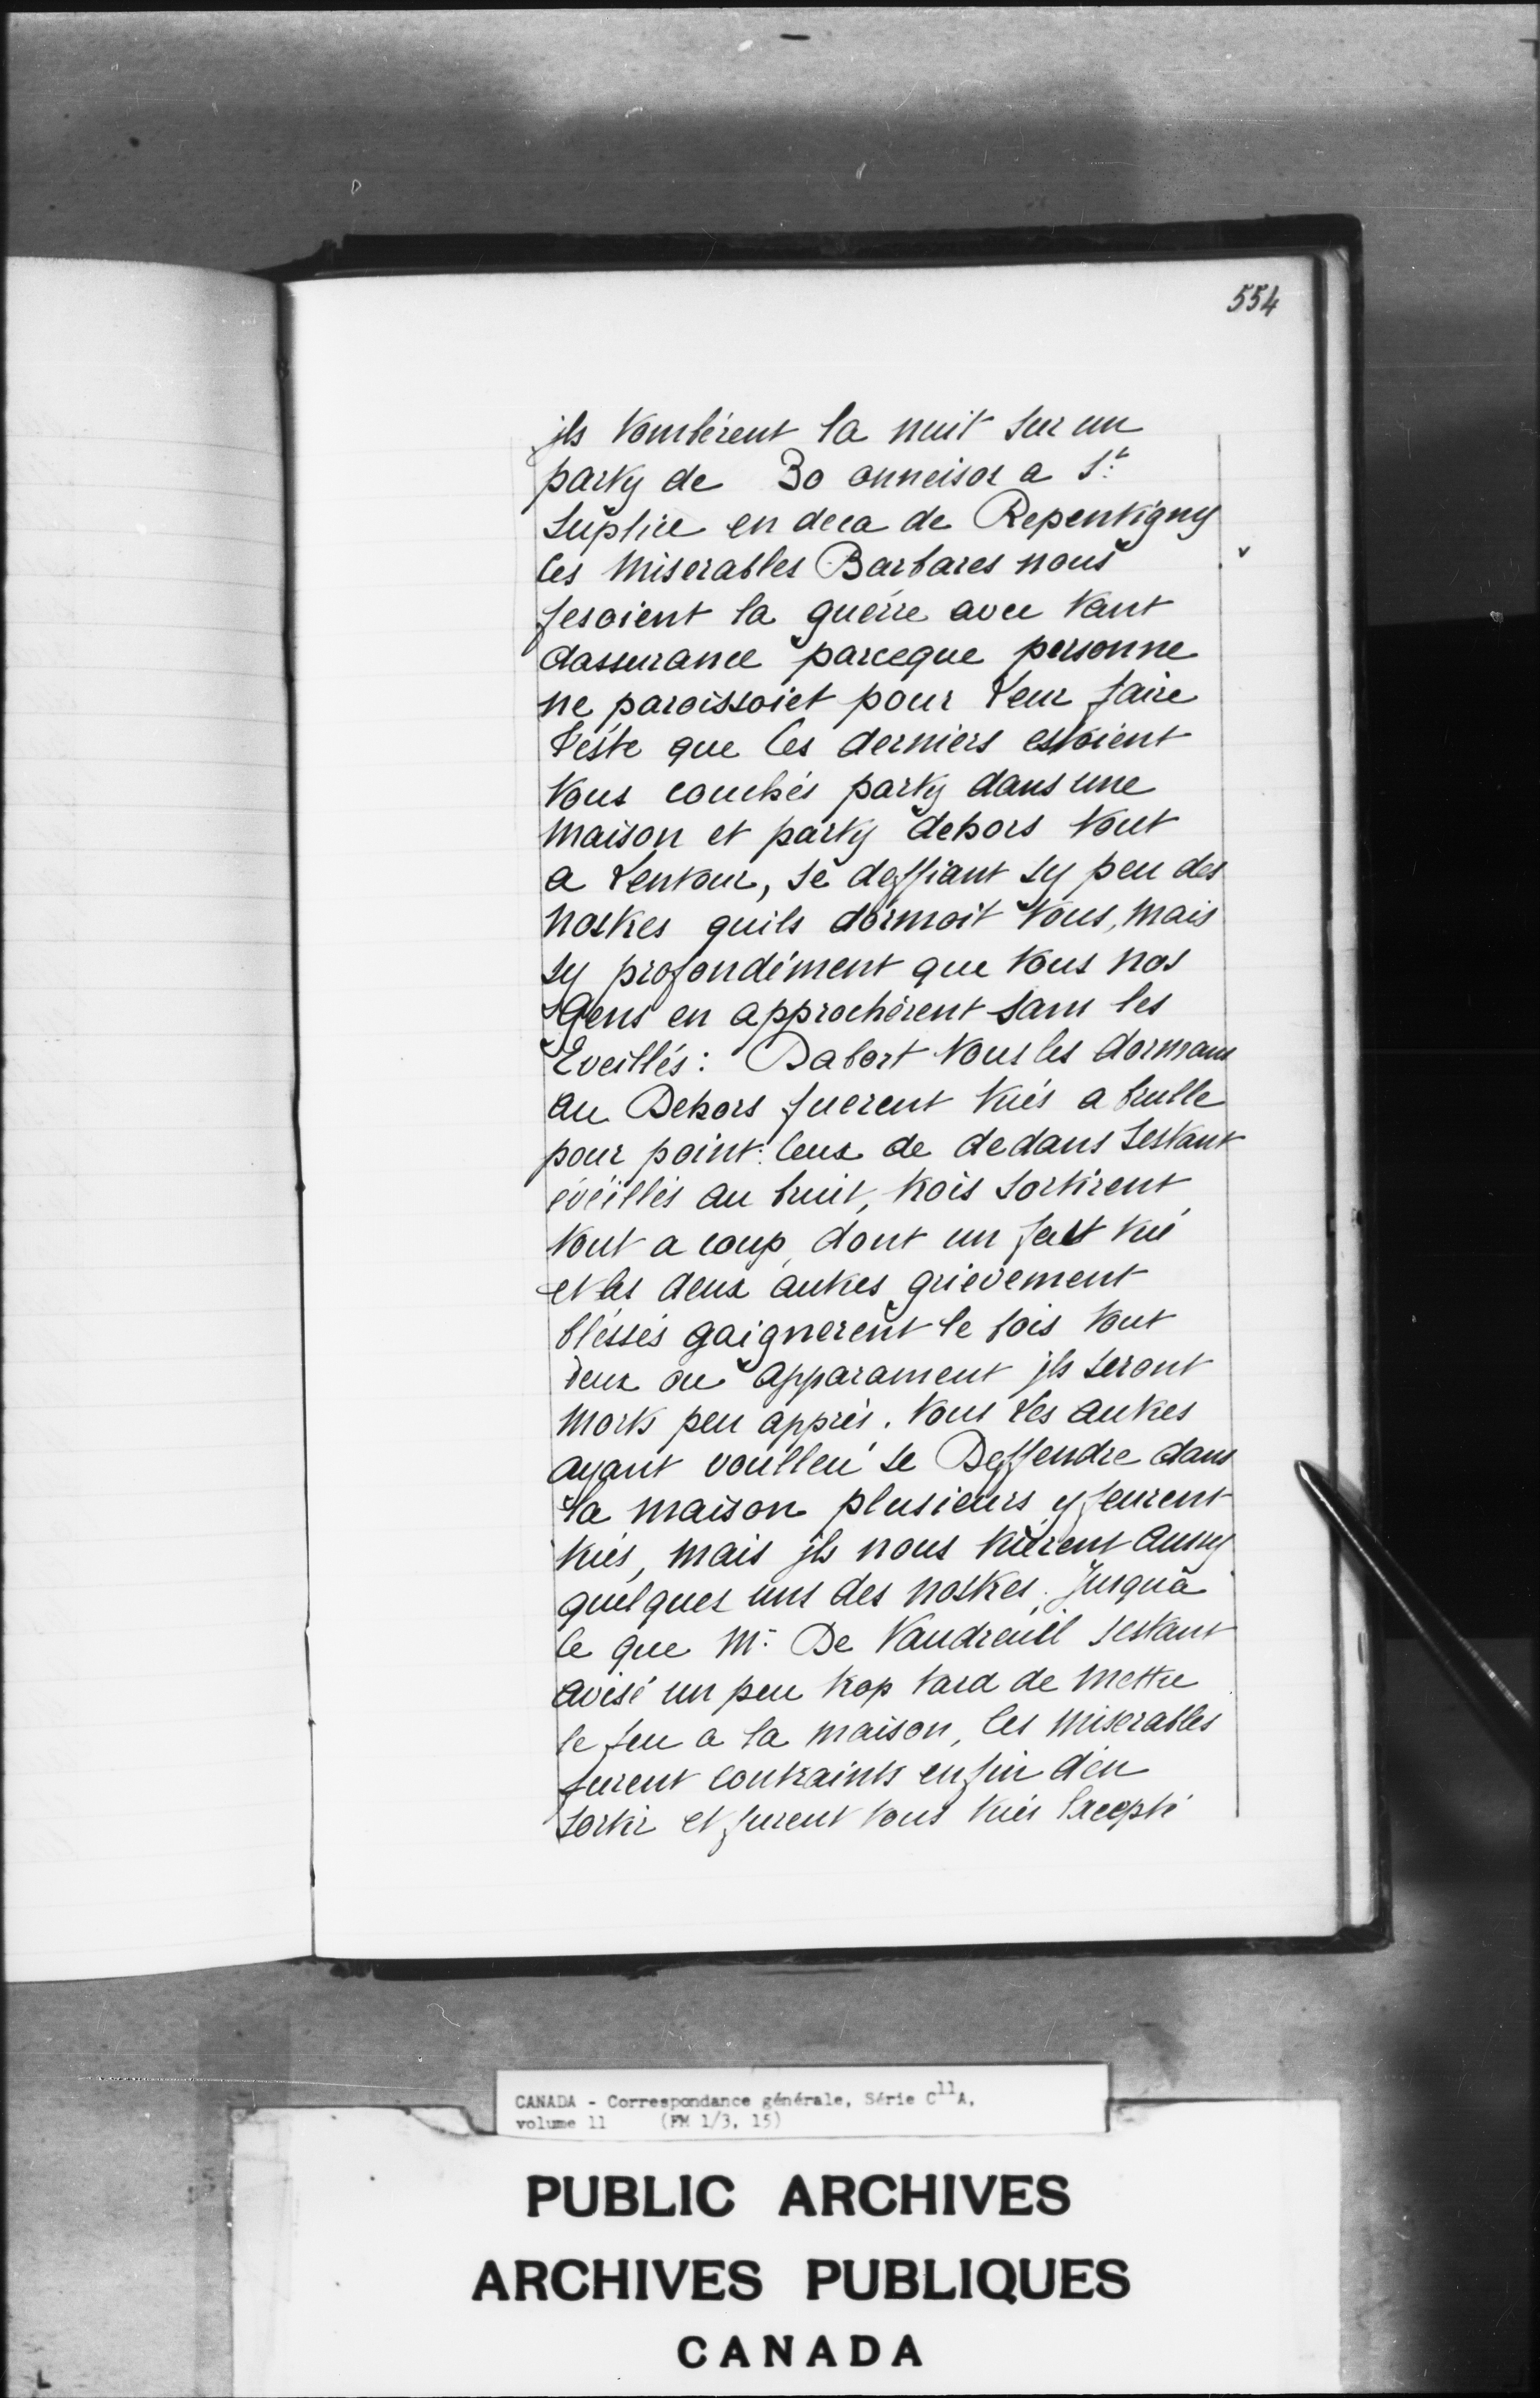 554
ils tombérent la nuit sur un
party de 30 onneisos a St.
Suplice en deca de Repentigny
Ces miserables Barbares nous
fesoient la guérre avec tant
dassurance parceque personne
ne paroissoiet pour leur faire
téste que les derniers estoient
tous couchés party dans une
maison et party dehors tout
a lentour, se deffiant sy peu des
nostres quils dormoit tous, mais
sy profondément que tous nos
Gens en approchérent sans les
Eveillés: Dabort tous les dormans
au Dehors fuerent tués a brulle
pour point: Ceux de dedans sestant
éveïllés au bruit, trois sortirent
tout a coup, dont un fut tué
et les deux autres grievement
bléssés gaignerent le bois tout
deux ou apparament ils seront
morts peu apprés. Tous les autres
ayant voulleu se Deffendre dans
la maison plusieurs y feurent
tués, mais ils nous tuèrent aussy
quelques uns des nostres. Jusqua
ce que Mr. De Vaudreuil sestant
avisé un peu trop tard de mettre
le feu a la maison, les miserables
furent contraints enfin dén
sortir et furent tous tués Excepté
CANADA - Correspondance générale, Série C11A,
volume 11 (FM 1/3, 15)
PUBLIC ARCHIVES
ARCHIVES PUBLIQUES
CANADA
L